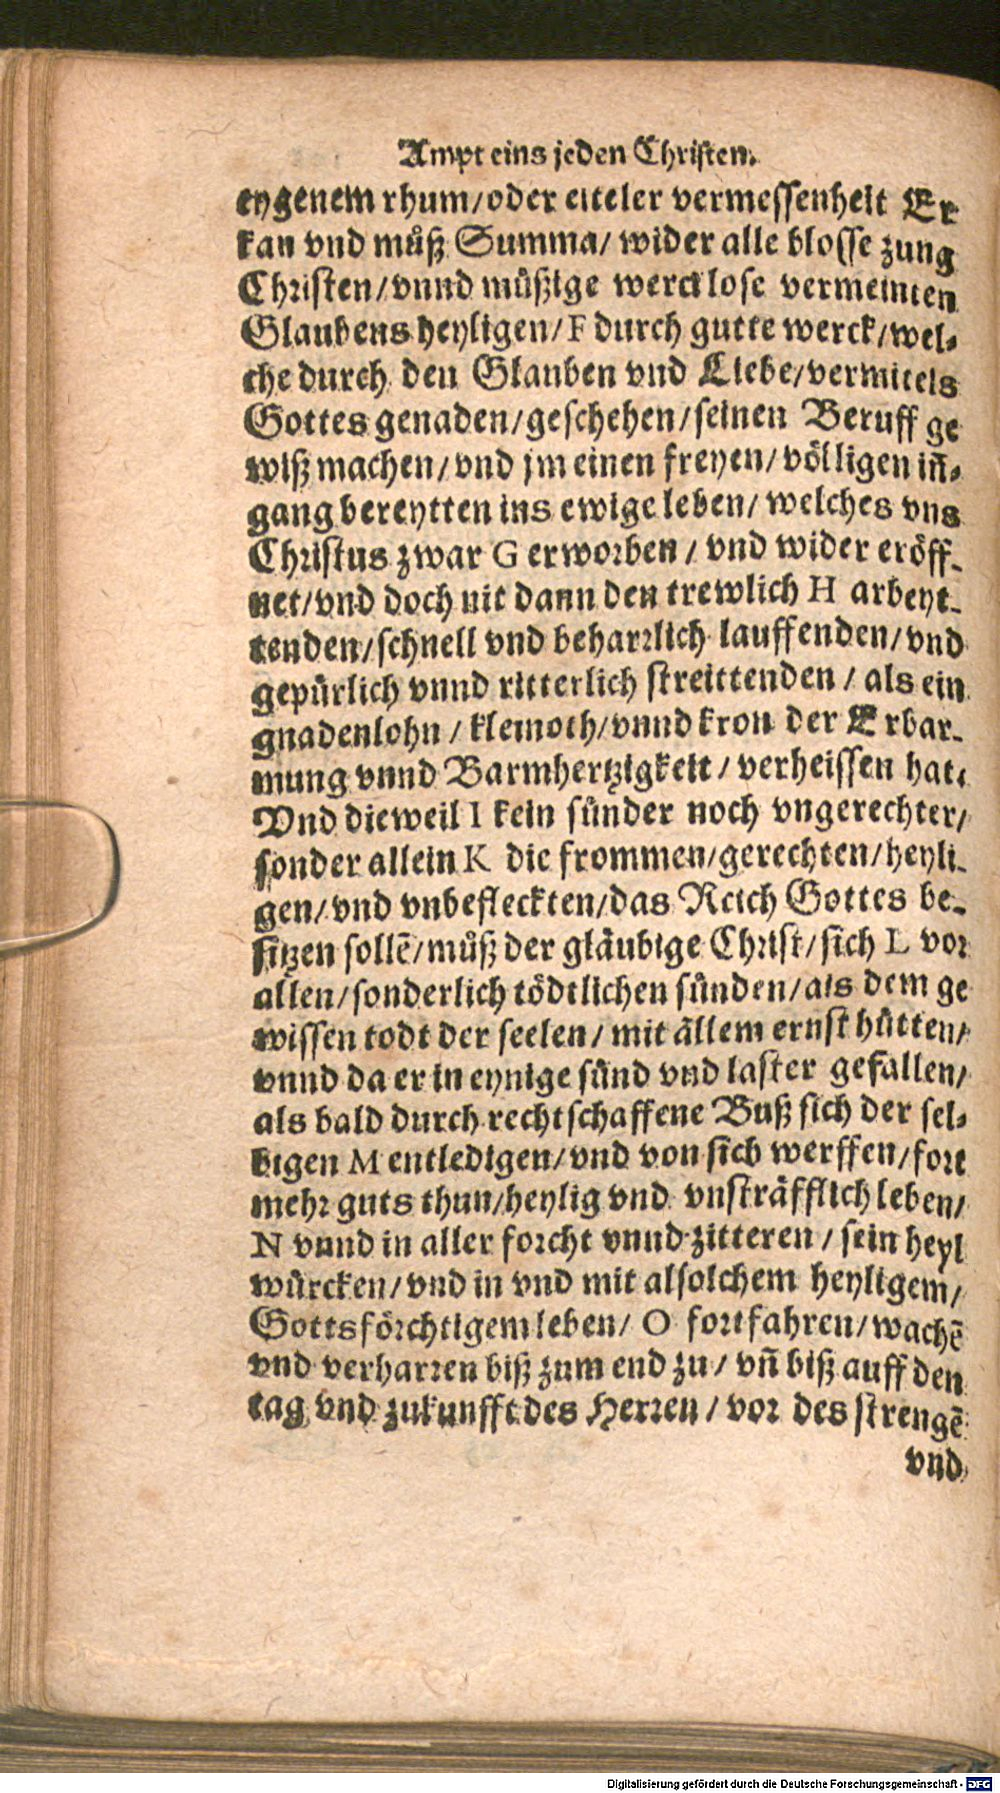 Ampt eins jeden Christen.
eygenem rhum/oder eiteler vermessenheit Er
kan vnd můß Summa/ wider alle blosse zung
Christen/vnnd müßige werck lose vermeinten
Glaubens heyligen/F durch gutte werck/wel-
che durch den Glauben vnd Liebe/vermitels
Gottes genaden/geschehen/seinen Beruff ge
wiß machen/vnd jm einen freyen/völligen in̄-
gang bereytten ins ewige leben/ welches vns
Christus zwar G erworben / vnd wider eröff-
net/vnd doch nit dann den trewlich H arbeyt-
tenden/schnell vnd beharrlich lauffenden/vnd
gepürlich vnnd ritterlich streittenden / als ein
gnadenlohn / kleinoth/vnnd kron der Erbar-
mung vnnd Barmhertzigkeit / verheissen hat.
Vnd dieweil I kein sünder noch vngerechter/
sonder allein K die frommen/gerechten/heyli-
gen/vnd vnbefleckten/das Reich Gottes be-
sitzen sollē/můß der gläubige Christ/sich L vor
allen/sonderlich tödtlichen sünden/als dem ge
wissen todt der seelen/ mit allem ernst hütten/
vnnd da er in eynige sünd vnd laster gefallen/
als bald durch rechtschaffene Buß sich der sel-
bigen M entledigen/vnd von sich werffen/fort
mehr guts thun/heylig vnd vnsträfflich leben/
N vnnd in aller forcht vnnd zitteren / sein heyl
würcken/vnd in vnd mit alsolchem heyligem/
Gottsförchtigem leben/ O fortfahren/wachē
vnd verharren biß zum end zu/ vn̄ biß auff den
tag vnd zukunfft des Herren / vor des strengē
vnd
Digitalisierung gefördert durch die Deutsche Forschungsgemeinschaft - DFG